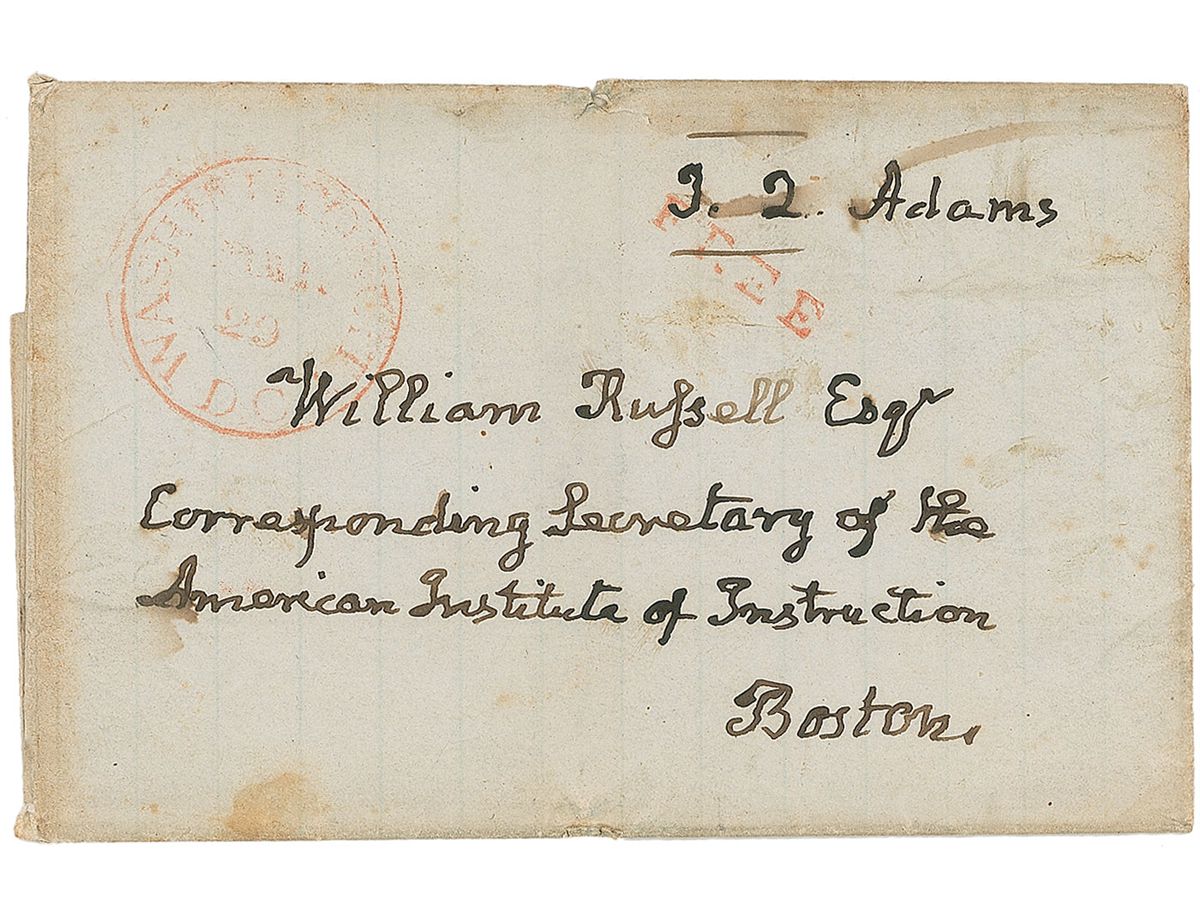 WASHINGTON
D.C.
29
J. Q. Adams
FREE
William Ruſsell Esqr
Corresponding Secretary of the
American Institute of Instruction
Boston.